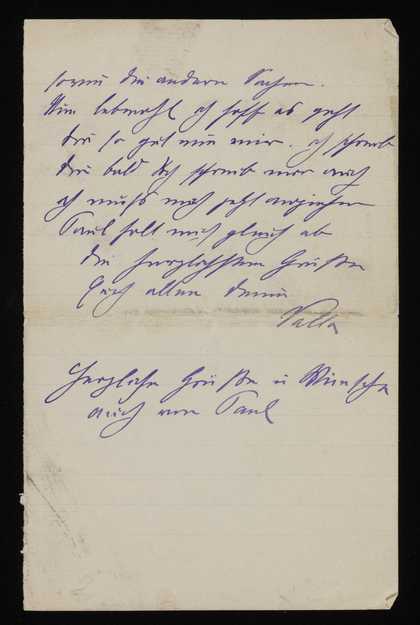 sowie die andern Sachen.
Nun lebwohl ich hoffe es geht
dir so gut wie mir. ich schreib
dir bald doch schreib mir auch
ich muß mich jetzt anziehen
Paul holt mich gleich ab
die herzlichsten Grüße
Euch allen deine
Valla
Herzliche Grüße u Wünsche
auch von Paul